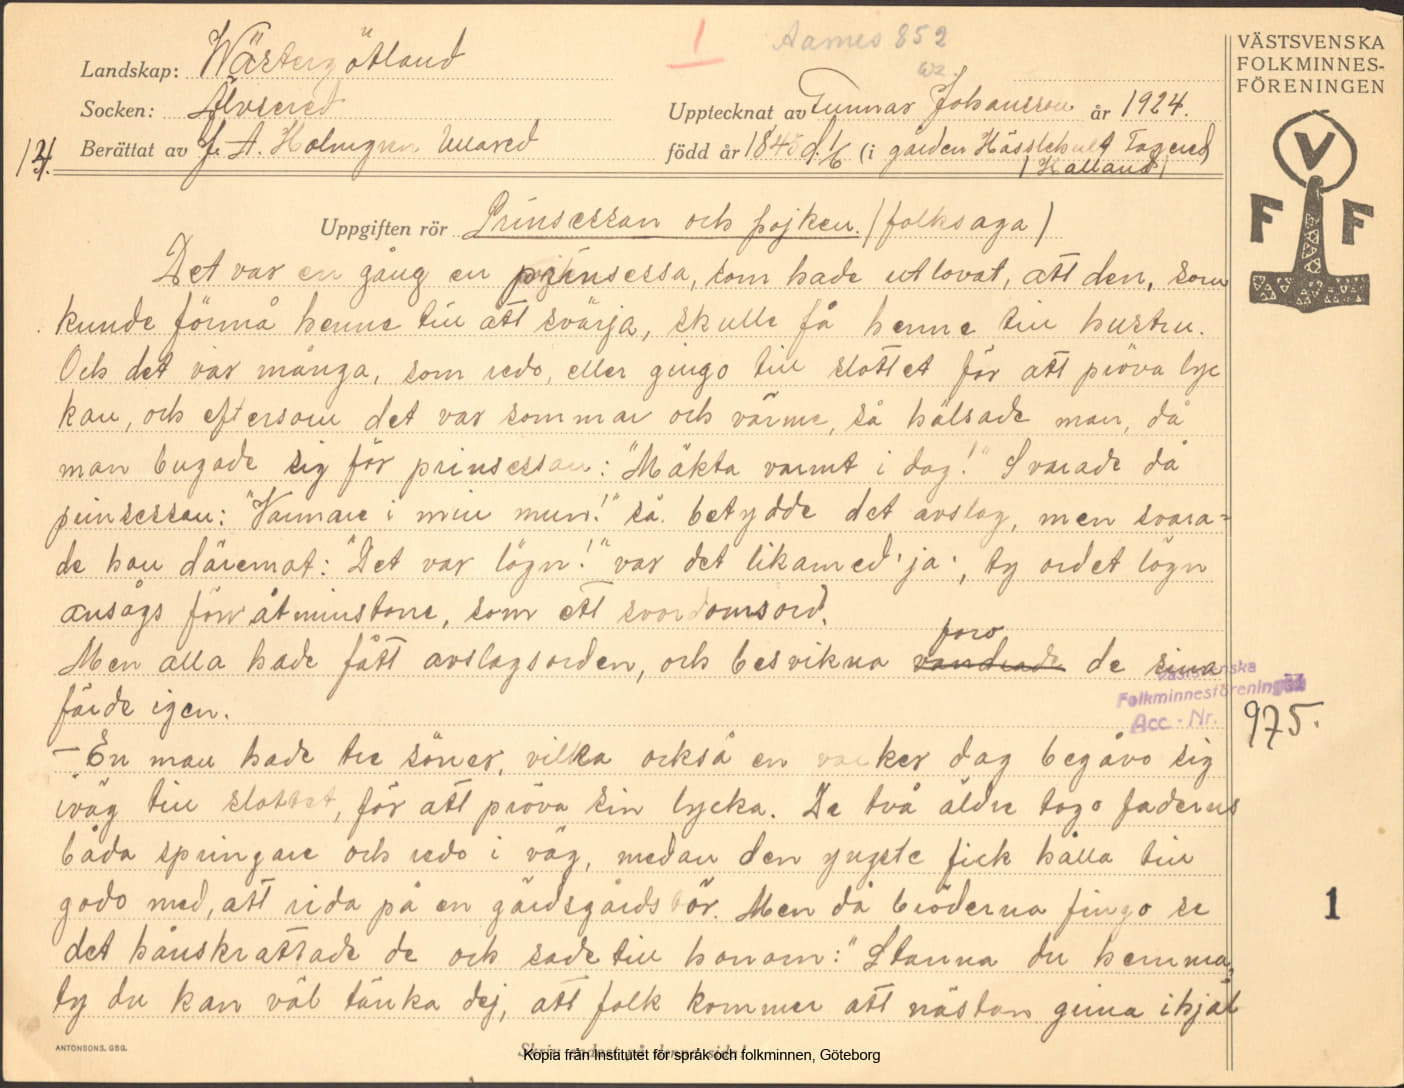 1
Aarnes 852
VÄSTSVENSKA
FOLKMINNES-
FÖRENINGEN
V
F F
Landskap: Wästergötland
Socken: Älvsered
Upptecknat av Gunnar Johansson år 1924.
Berättat av J. A. Holmgren Ullared
född år 1845 9/6 (i gården Hässlehult Fagered
(Halland)
Uppgiften rör Prinsessan och pojken. (folksaga)
Det var en gång en prinsessa, som hade utlovat, att den, som
kunde förmå henne till att svärja, skulle få henne till hustru.
Och det var många, som redo, eller gingo till slottet för att pröva lyc
kan, och eftersom det var sommar och värme, så hälsade man, då
man bugade sig för prinsessan: "Mäkta varmt i dag!" Svarade då
prinsessan: "Varmare i min mun!" så betydde det avslag, men svara-
de hon däremot: "Det var lögn!" var det likamed 'ja', ty ordet lögn
ansågs förr åtminstone, som ett svordomsord.
Men alla hade fått avslagsorden, och besvikna vandrade foro de sina
färde igen.
Västsvenska
Folkminnesföreningen
Acc.-Nr. 975.
– En man hade tre söner, vilka också en vacker dag begåvo sig
iväg till slottet, för att pröva sin lycka. De två äldre togo faderns
båda springare och redo i väg, medan den yngste fick hålla till
godo med, att rida på en gärdsgårdsstör. Men då bröderna fingo se
det hånskrattade de och sade till honom: "Stanna du hemma,
ty du kan väl tänka dej, att folk kommer att nästan grina ihjäl
1
ANTONSONS, GBG.
Kopia från Institutet för språk och folkminnen, Göteborg